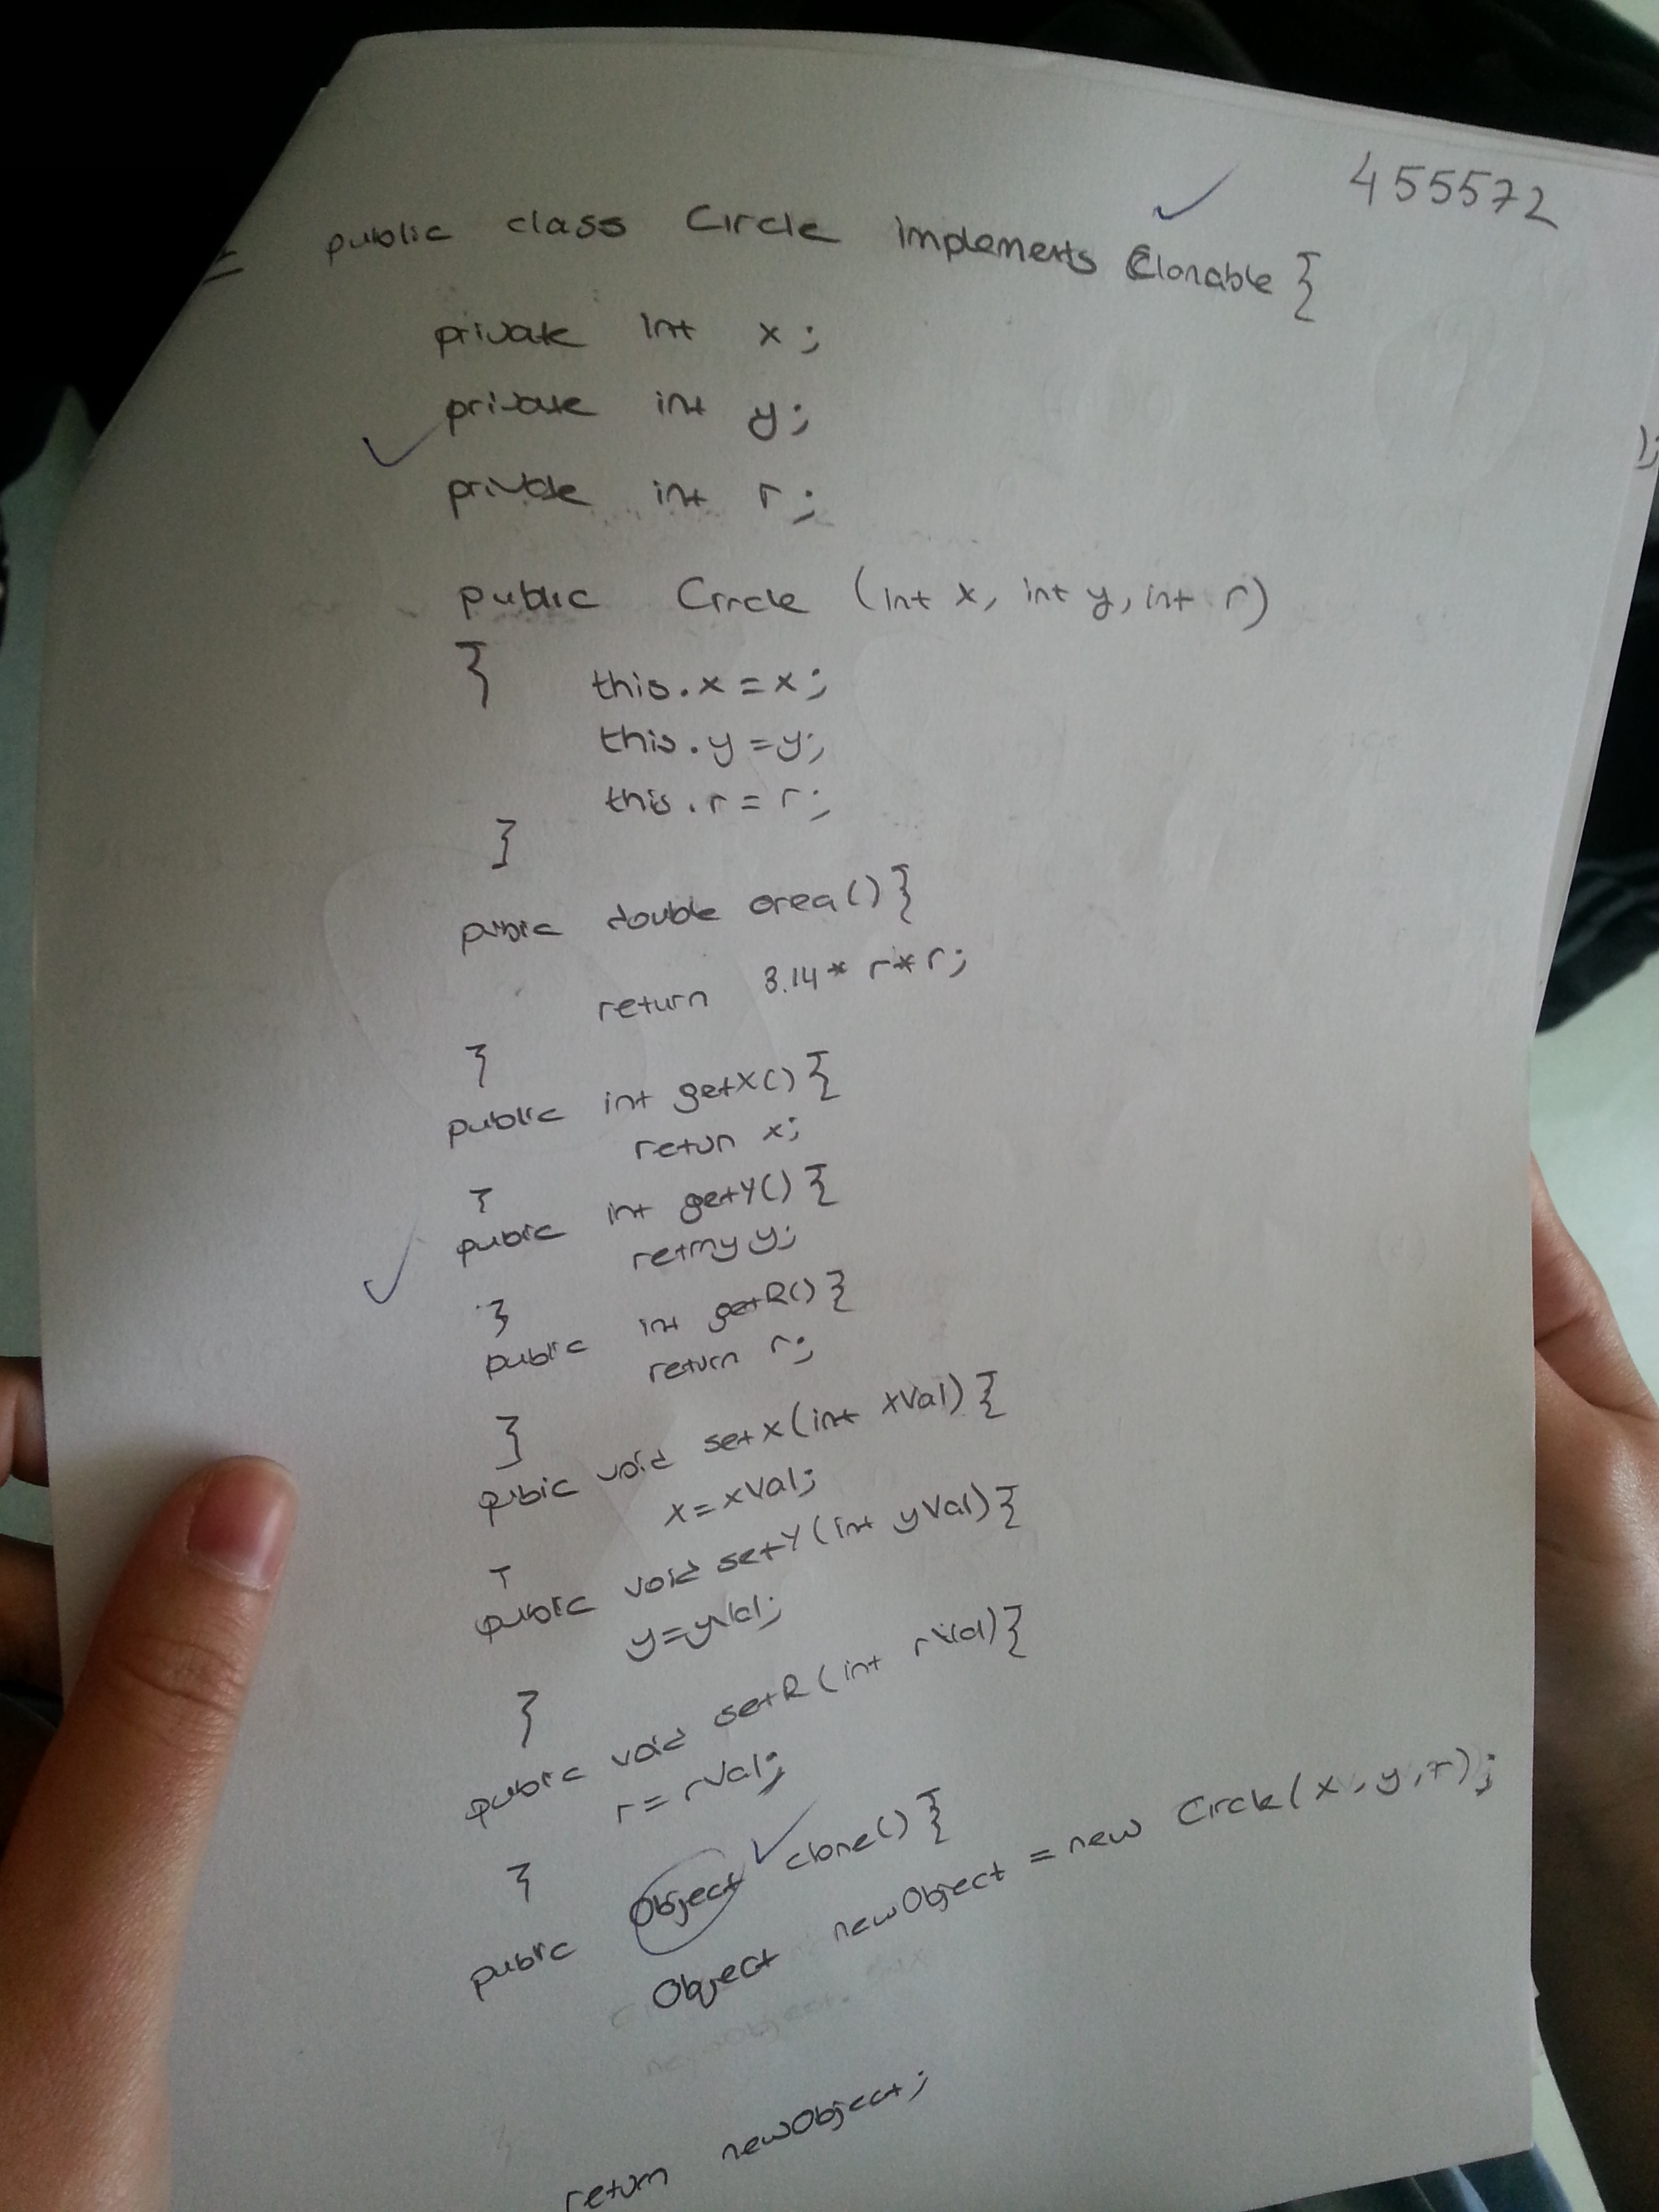 455572
public class Circle implements Clonable {
private int x;
private int y;
private int r;
public Circle (int x, int y, int r)
{ this.x = x;
this.y = y;
this.r = r;
}
public double area() {
return 3.14 * r * r;
}
public int getX() {
retun x;
}
public int getY() {
y;
}
public int getR() {
return r;
}
public void setX(int xVal) {
x = xVal;
}
public void setY(int yVal) {
y = yVal;
}
public void setR(int rVal) {
r = rVal;
}
public Object clone() {
Object newObject = new Circle(x, y, r);
return newObject;
);